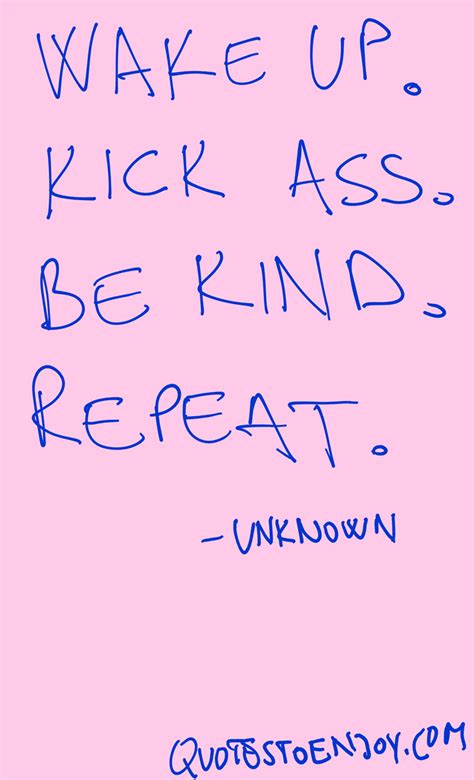 WAKE UP.
KICK ASS.
BE KIND.
REPEAT.
-UNKNOWN
QUOTESTOENJOY.COM